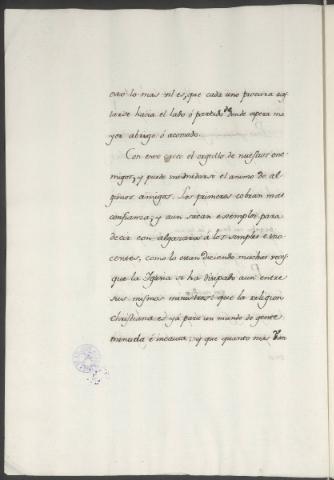 esto lo mas útil es, que cada uno procura ca
tarse hacia el lado ó partido de donde espera ma
yor abrigo ó acomodo.
Con esto crece el orgullo de nuestros ene
migos, y puede moderarse el animo de al
gunos amigos. Los primeros cobran mas
confianza, y aun sacan exemplos para
decir con algazara á los simples é ino
centes, como lo estan diciendo muchas veces
que la Iglesia se ha disipado aun entre
sus mismos ministros: que la religion
christiana es yá para un mundo de gente
menuda, é incauta, y que quanto mas